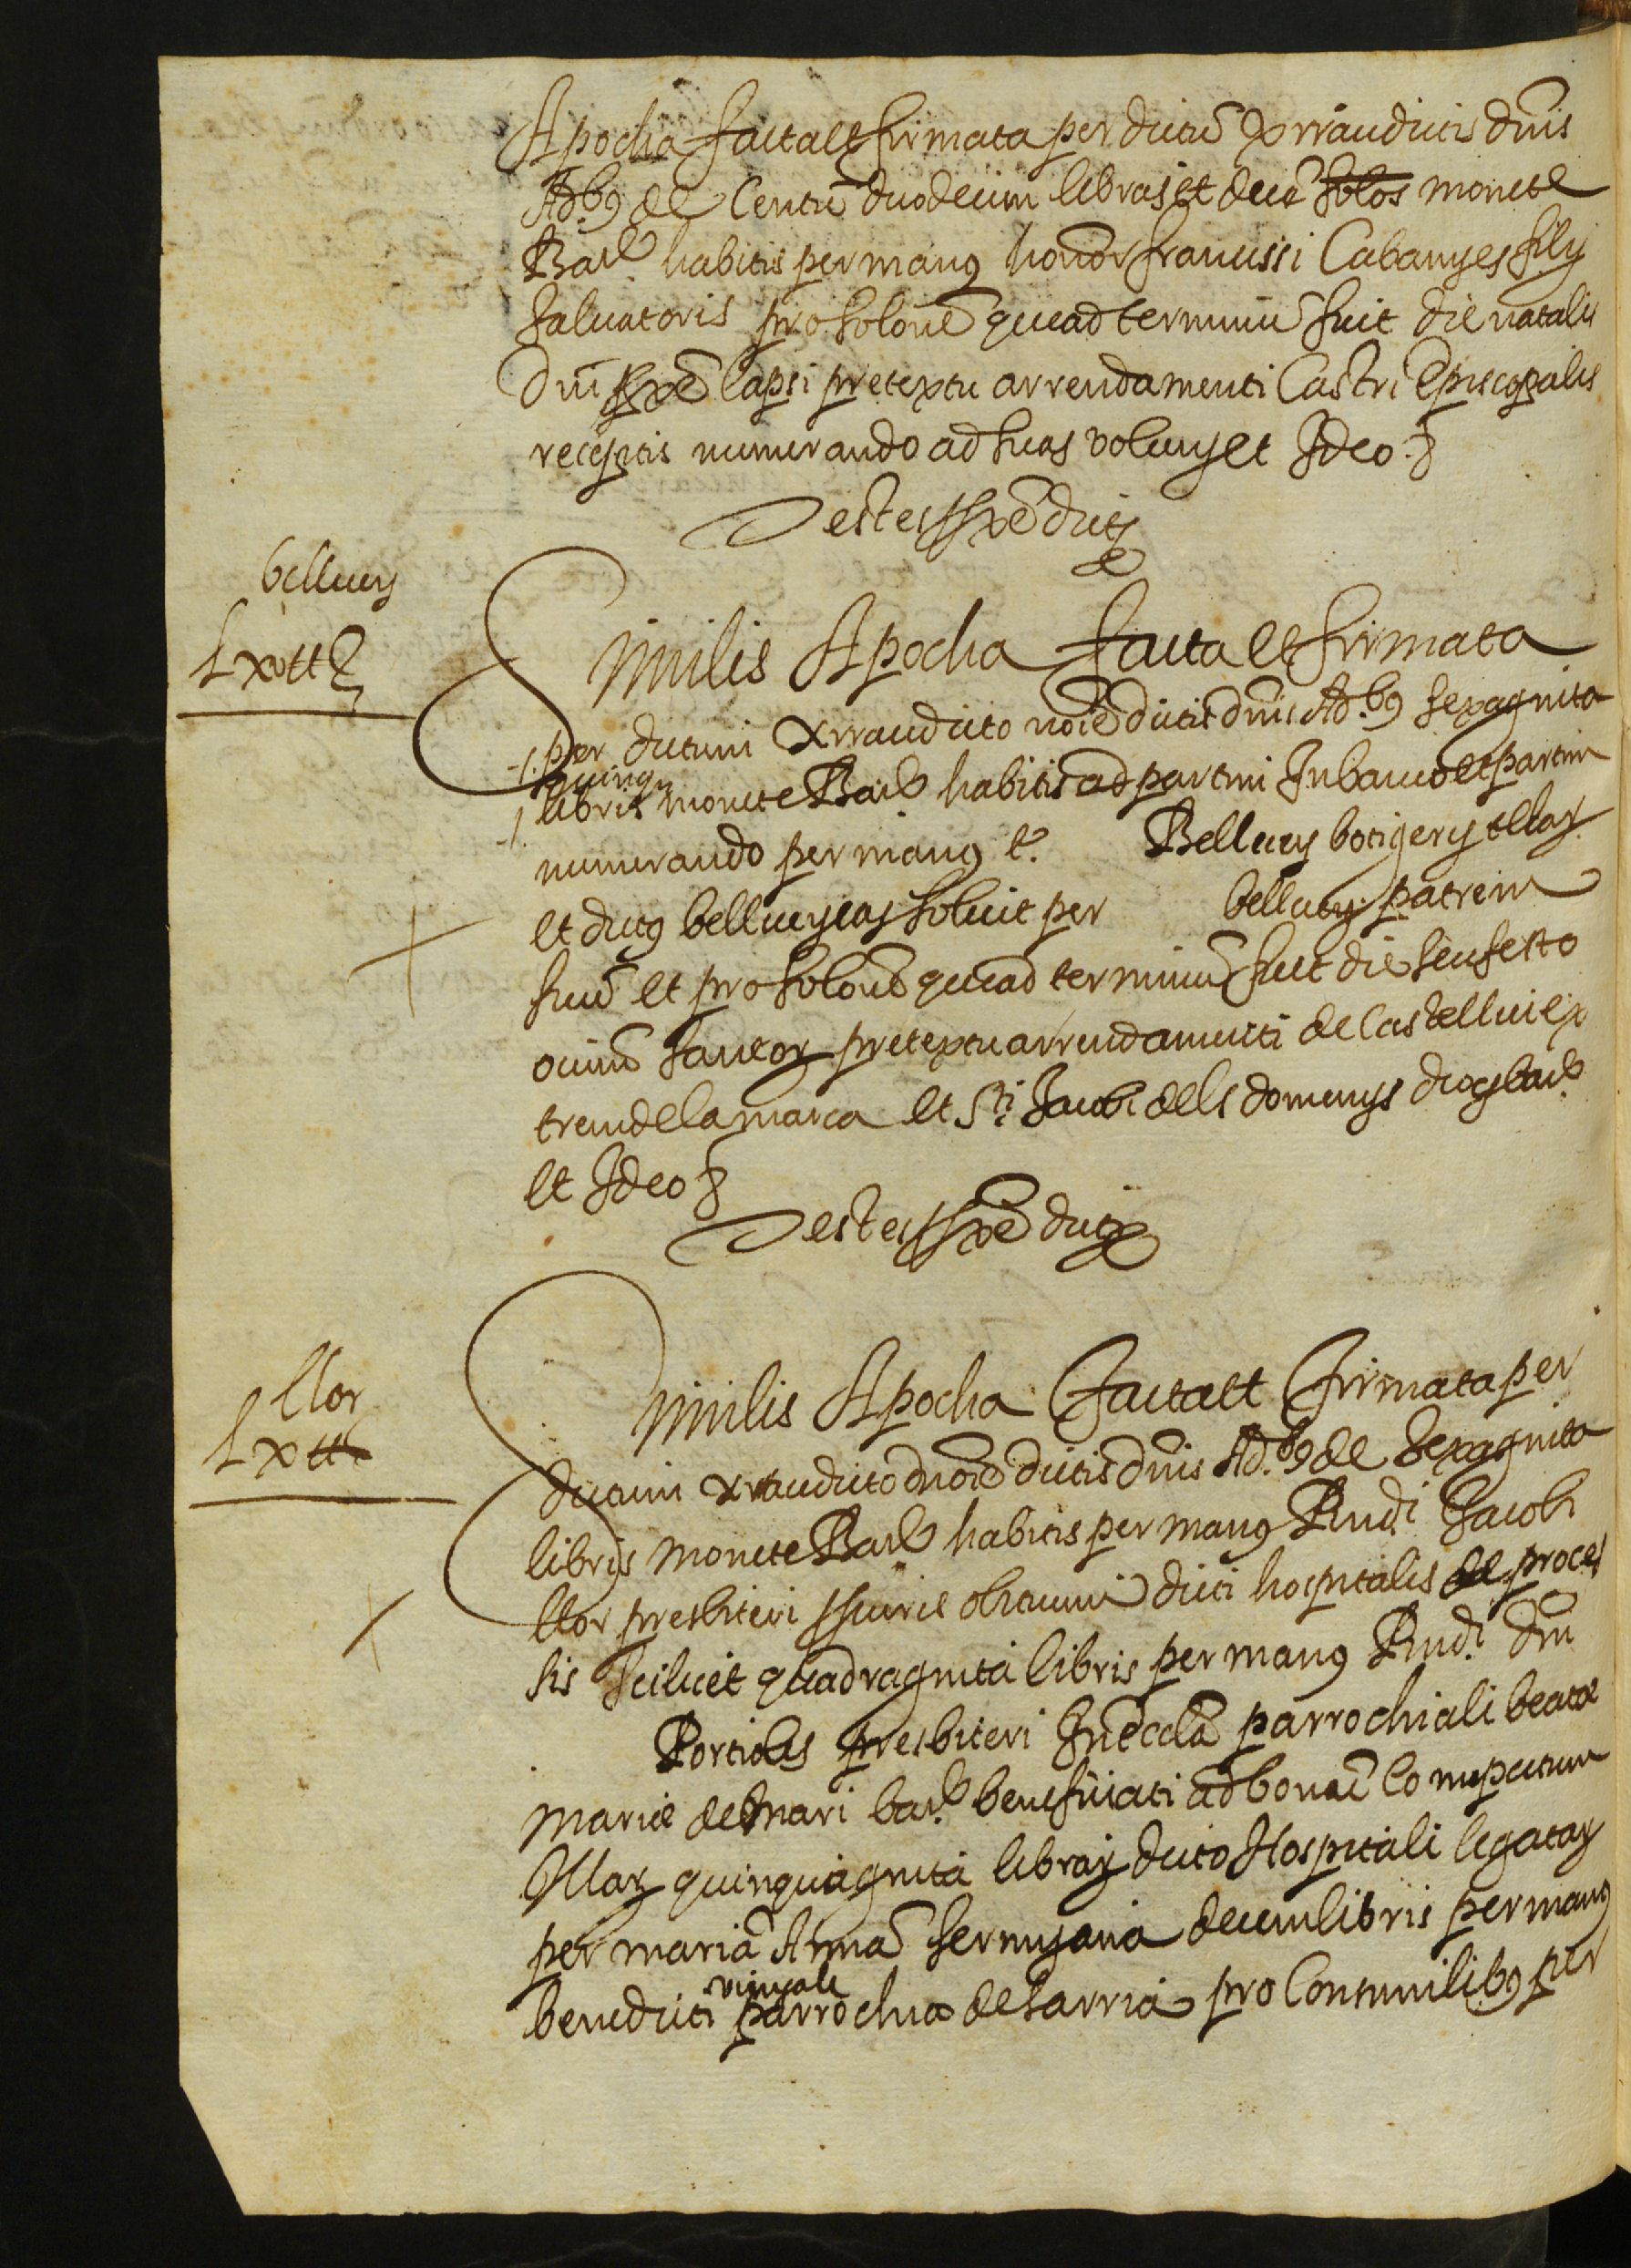 Apocha facta et firmata per dictũ Xrraudictis dñis
Adbꝯ de Centũ duodecim libras et decẽ solos monete
Barᵉ habitis per manꝯ honor francissi Cabanyes filij
Salvatoris pro solonẽ que ad terminũ fuit die natalis
dñi pxẽ lapsi pretextu arrendamenti Castri Episcopalis
receptis numerando ad suas volunᵉ et Ideo &
Testes pxẽ dicti
bellvey
Lxv tt
Similis Apocha facta et firmata
per dictum Xrraudicto noiẽ dictis dñis Adbꝯ sexaginta
quinqꝫ
libris monete Barᵉ habitis ad partim In banco et partim
numerando per manꝯ &. Bellvey botigerij tellaꝝ
et dictꝯ bellvey eas solvit per bellvey patrem
suũ et pro solonẽ que ad terminũ fuit die seu festo
oniũ sanctoꝝ pretextu arrendamenti de Castellvi ex
trem de la marca et Sti Jacobi dels domenys diogᵉ barᵉ
et Ideo &
Testes pxẽ dicti
llor
Lx tt
Similis Apocha facta et firmata per
dictum Xraudicto noiẽ dictis dñis Adbꝯ de sexaginta
libris monete Barᵉ habitis per manꝯ Rndi Jacobi
llor presbiteri scurie obituum dicti hospitalis de proces
sis scilicet quadraginta libris per manꝯ Rndi dñi
Portioles presbiteri In ecclã parrochiali beatæ
mariæ de mari barᵉ beneficiati ad bonũ Computum
Illaꝝ quinquaginta libraꝝ dicto Hospitali legataꝝ
per mariã Annã sermyana decem libris per manꝯ
vinyals
benedicti parrochia de Sarria pro Consimilibꝯ per